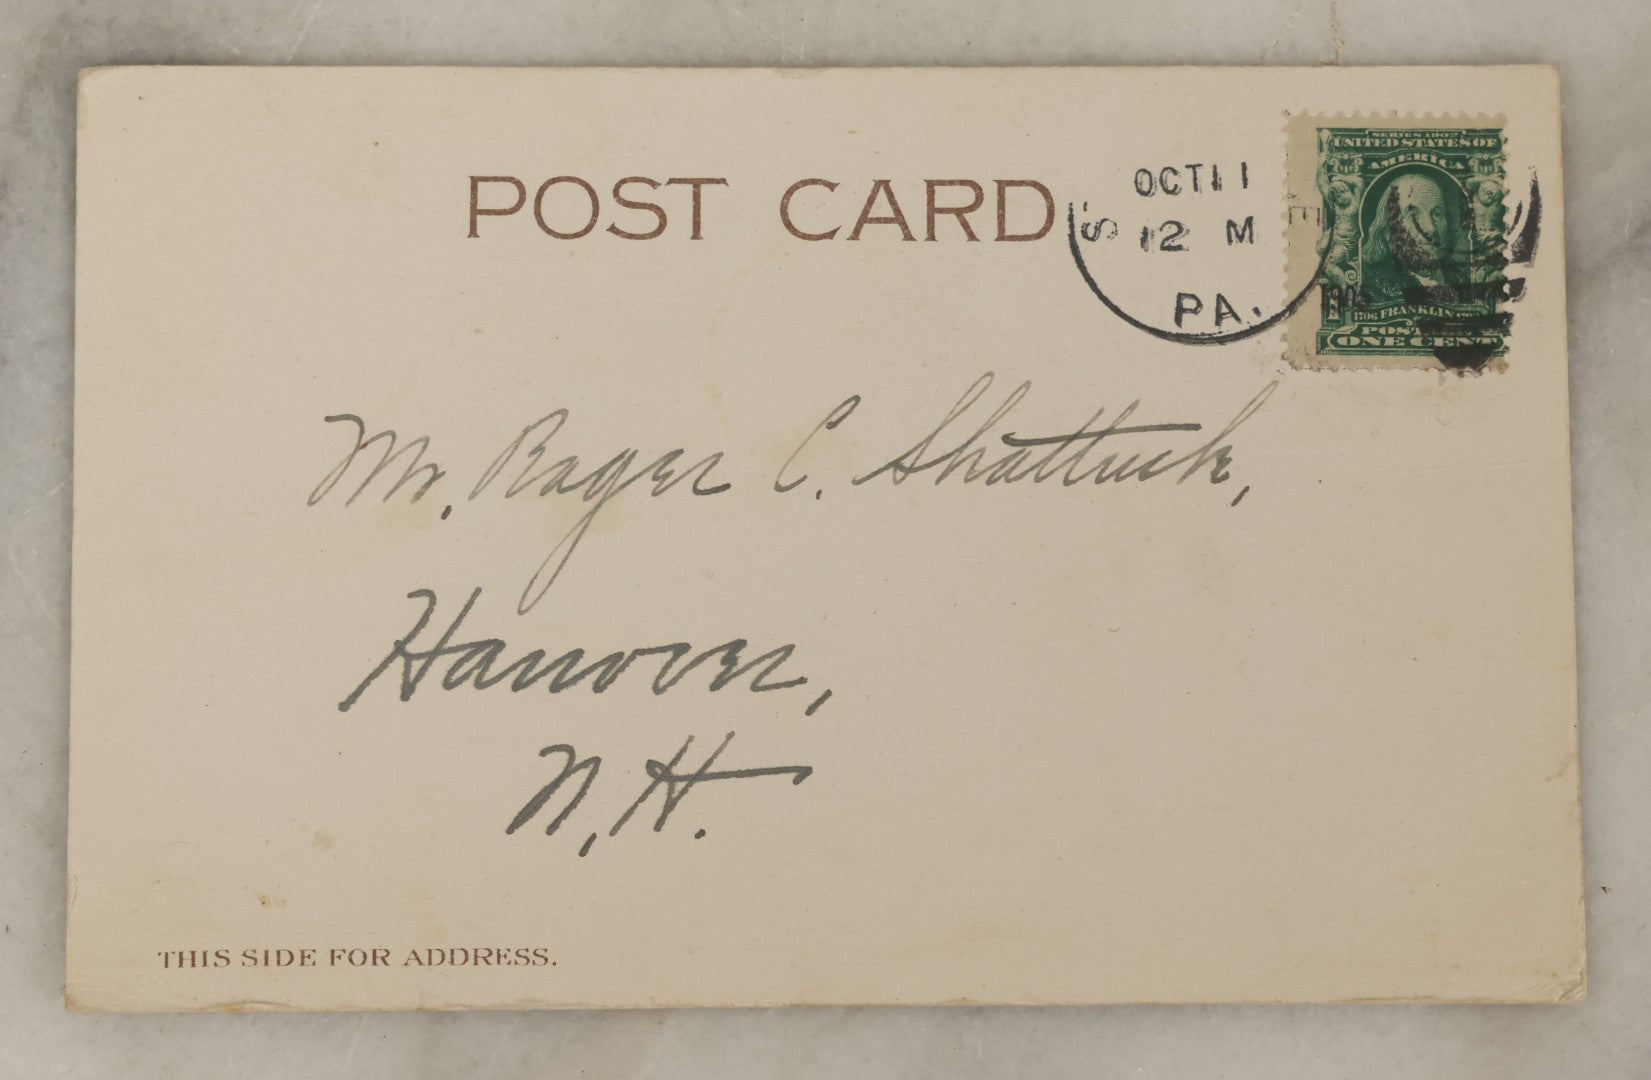 POST CARD
OCT 11
12 M
PA.
SERIES 1902
UNITED STATES OF
AMERICA
1706 FRANKLIN
POSTAGE
ONE CENT
Mr. Roger C. Shattuck,
Hanover,
N.H.
THIS SIDE FOR ADDRESS.